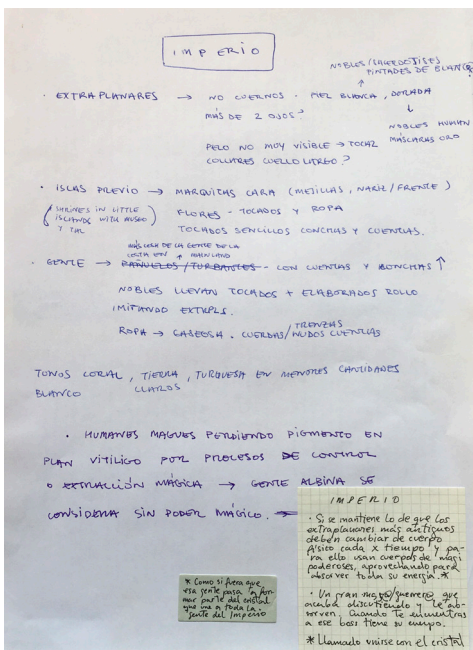 IMPERIO
NOBLES/SACERDOTISES
PINTADES DE BLANCO
· EXTRAPLANARES → NO CUERNOS - PIEL BLANCA, DORADA
MÁS DE 2 OJOS?
NOBLES HUMAN
MÁSCARAS ORO
PELO NO MUY VISIBLE → TOCAZ
COLLARES CUELLO LARGO?
· ISLAS PREVIO → MARQUITAS CARA (MEJILLAS, NARIZ/FRENTE)
(SHRINES IN LITTLE
ISLANDS WITH MUSEO
Y TAL)
FLORES - TOCADOS Y ROPA
TOCADOS SENCILLOS CONCHAS Y CUENTAS.
MÁS CERCA DE LA GENTE DE LA
COSTA EN MAINLAND
· GENTE → PAÑUELOS/TURBANTES - CON CUENTAS Y CONCHAS ↑
NOBLES LLEVAN TOCADOS + ELABORADOS ROLLO
IMITANDO EXTRPLS.
ROPA → GASEOSA. CUERDAS/TRENZAS
NUDOS CUENTAS
TONOS CORAL, TIERRA, TURQUESA EN MENORES CANTIDADES
BLANCO CLAROS
· HUMANES MAGUES PERDIENDO PIGMENTO EN
PLAN VITILIGO POR PROCESOS DE CONTROL
O EXTRACCIÓN MÁGICA → GENTE ALBINA SE
CONSIDERA SIN PODER MÁGICO.
IMPERIO
· Si se mantiene lo de que los
extraplanares más antiguos
deben cambiar de cuerpo
físico cada x tiempo y pa-
ra ello usan cuerpos de magi
poderoses, aprovechando para
absorver toda su energía. *
· Un gran mago/guerrero que
acaba discutiendo y le ab-
sorven. Cuando te encuentras
a ese boss tiene su cuerpo.
* Llamado unirse con el cristal
* Como si fuera que
esa gente pasa a for-
mar parte del cristal
que une a toda la
gente del Imperio